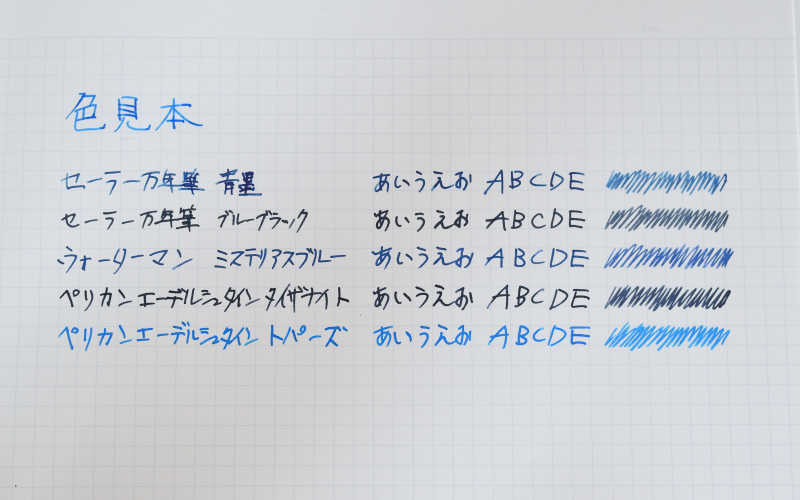 色見本
セーラー万年筆 青墨 あいうえお ABCDE
セーラー万年筆 ブルーブラック あいうえお ABCDE
ウォーターマン ミステリアスブルー あいうえお ABCDE
ペリカンエーデルシュタイン タイザナイト あいうえお ABCDE
ペリカンエーデルシュタイン トパーズ あいうえお ABCDE